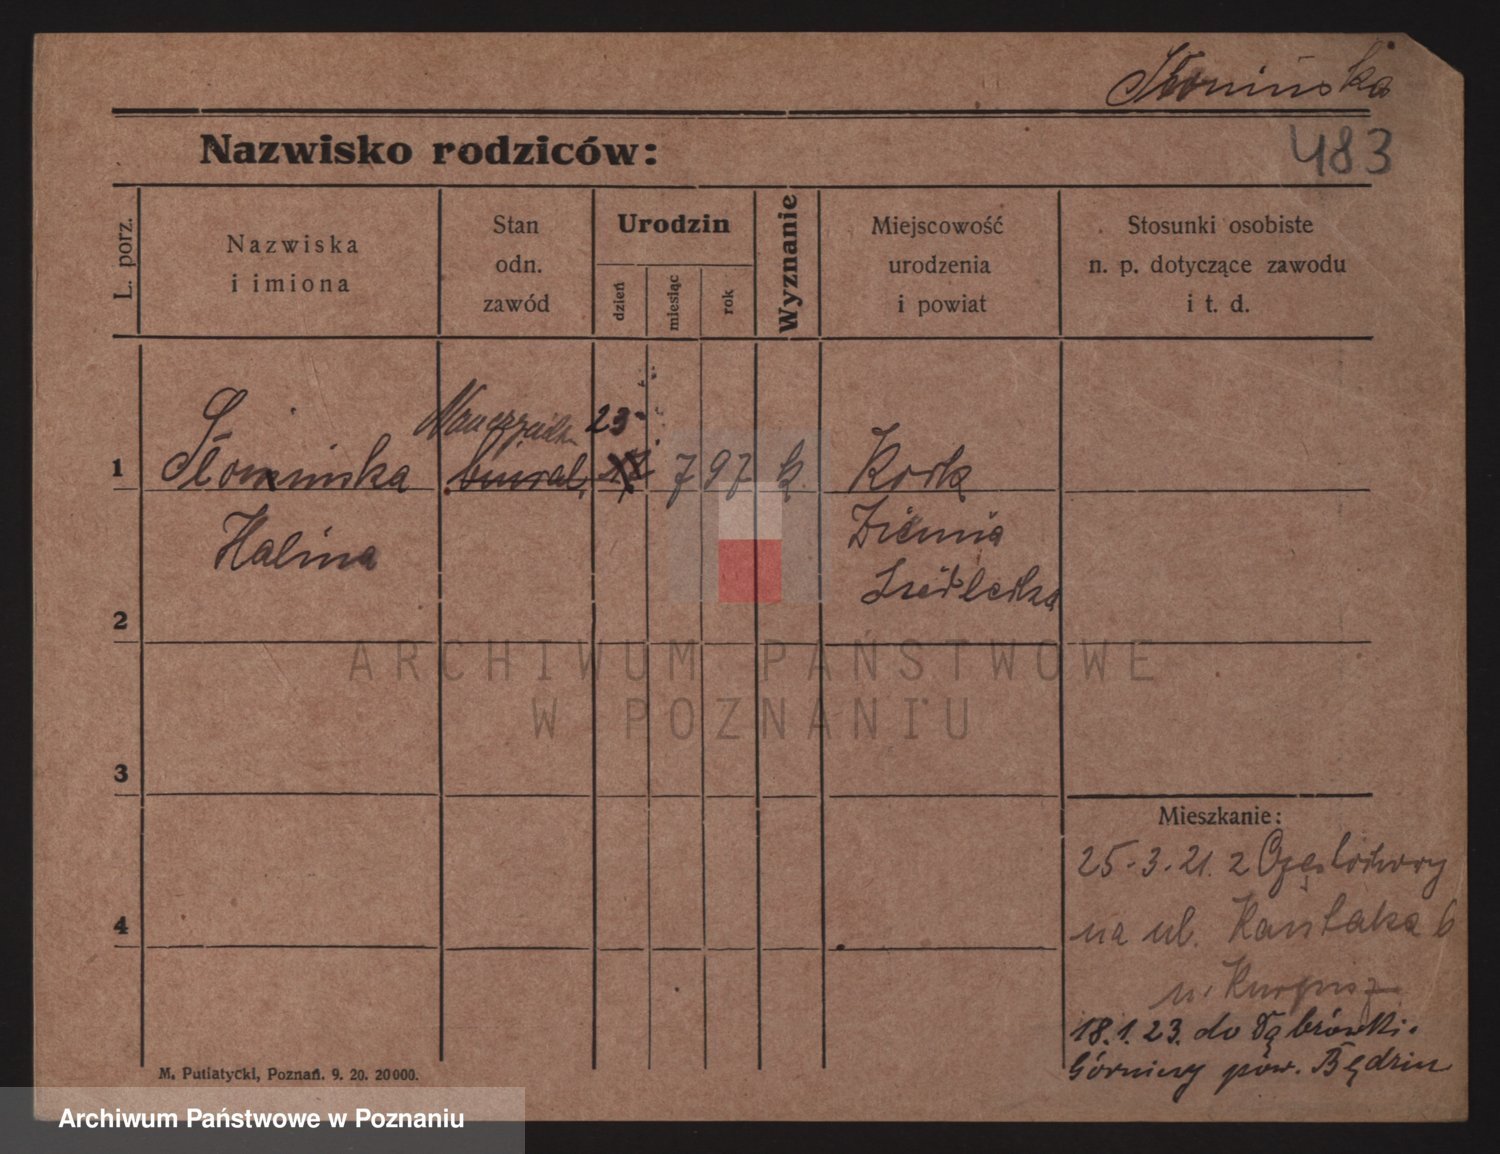 Słonińska
483
Nazwisko rodziców:
L. porz.
Nazwiska
i imiona
Stan
odn.
zawód
Urodzin
dzień
miesiąc
rok
Wyznanie
Miejscowość
urodzenia
i powiat
Stosunki osobiste
n. p. dotyczące zawodu
i t. d.
1
Słonimska
Halina
biural.
23
7
97
k.
Ziemia
Siedlecka
2
3
4
Mieszkanie:
25.3.21. z Częstochowy
na ul. Kantaka 6
18.1.23. do Dąbrówki
Górniczy pow. Będzin
M. Putiatycki, Poznań. 9. 20. 20000.
ARCHIWUM PAŃSTWOWE
W POZNANIU
Archiwum Państwowe w Poznaniu